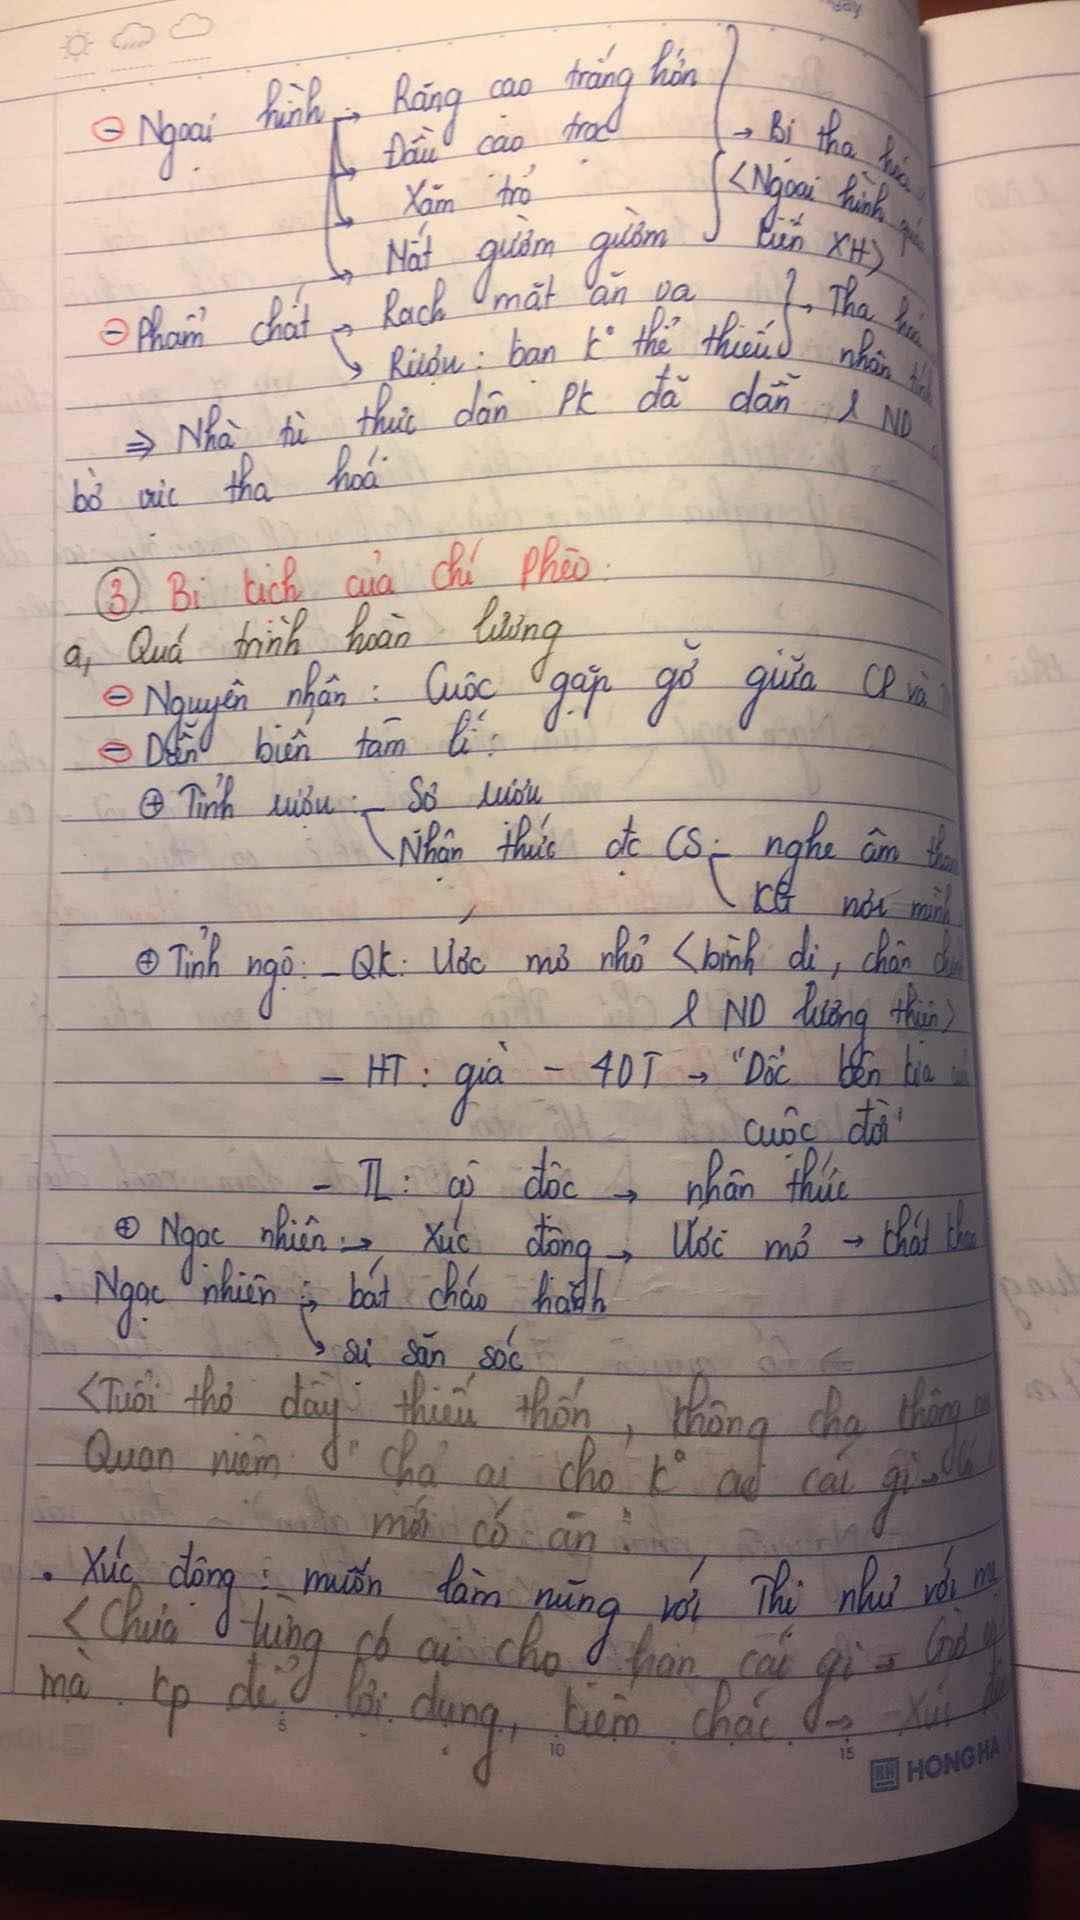 ⊖ Ngoại hình → Răng cạo trắng hởn
→ Đầu cạo trọc
→ Xăm trổ
→ Mắt gườm gườm
→ Bị tha
<Ngoại hình
tiền XH>
⊖ Phẩm chất → Rạch mặt ăn vạ
→ Rượu: bạn k° thể thiếu
→ Tha
nhân tính
⇒ Nhà tù thực dân PK đã dẫn 1 ND
bờ vực tha hoá
③ Bi kịch của chí Phèo.
a, Quá trình hoàn lương
⊖ Nguyên nhân: Cuộc gặp gỡ giữa CP và
⊖ Diễn biến tâm lí:
⊕ Tỉnh rượu: – Sợ rượu
Nhận thức đc CS: – nghe âm
KG nơi mình
⊕ Tỉnh ngộ: – QK: Ước mơ nhỏ <bình dị, chân
1 ND lương thiện>
– HT: già – 40T → "Dốc bên kia
cuộc đời"
– TL: cô độc → nhận thức
⊕ Ngạc nhiên → Xúc động → Ước mơ → thất
. Ngạc nhiên: → bát cháo hành
→ sự săn sóc
<Tuổi thơ đầy thiếu thốn, không cha không
Quan niệm "chả ai cho k° ai cái gì →
mới có ăn"
. Xúc động: muốn làm nũng với Thị như với
<Chưa từng có ai cho hắn cái gì →
mà kp để lợi dụng, kiếm chác →
5 10 15
HONG HA